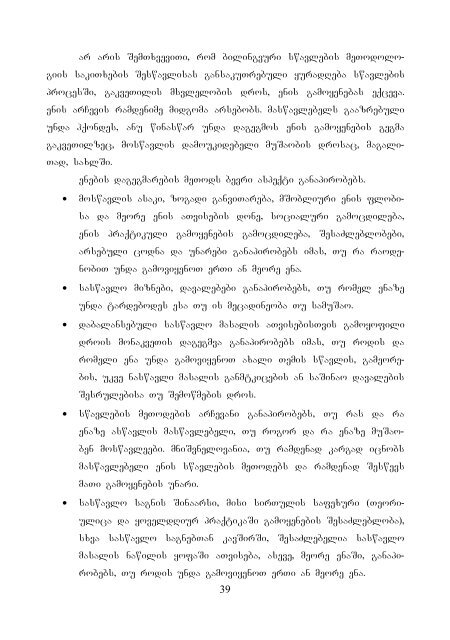 არ არის შემთხვევითი, რომ ბილინგვური სწავლების მეთოდოლო-
გიის საკითხების შესწავლისას განსაკუთრებული ყურადღება სწავლების
პროცესში, გაკვეთილის მსვლელობის დროს, ენის გამოყენებას ექცევა.
ენის არჩევის რამდენიმე მიდგომა არსებობს. მასწავლებელს გააზრებული
უნდა ჰქონდეს, ანუ წინასწარ უნდა დაგეგმოს ენის გამოყენების გეგმა
გაკვეთილზეც, მოსწავლის დამოუკიდებელი მუშაობის დროსაც, მაგალი-
თად, სახლში.
ენების დაგეგმარების მეთოდს ბევრი ასპექტი განაპირობებს.
• მოსწავლის ასაკი, ზოგადი განვითარება, მშობლიური ენის ფლობი-
სა და მეორე ენის ათვისების დონე, სოციალური გამოცდილება,
ენის პრაქტიკული გამოყენების გამოცდილება, შესაძლებლობები,
არსებული ცოდნა და უნარები განაპირობებს იმას, თუ რა რაოდე-
ნობით უნდა გამოვიყენოთ ერთი ან მეორე ენა.
• სასწავლო მიზნები, დავალებები განაპირობებს, თუ რომელ ენაზე
უნდა ტარდებოდეს ესა თუ ის მეცადინეობა თუ სამუშაო.
• დაბალანსებული სასწავლო მასალის ათვისებისთვის გამოყოფილი
დროის მონაკვეთის დაგეგმვა განაპირობებს იმას, თუ როდის და
რომელი ენა უნდა გამოვიყენოთ ახალი თემის სწავლის, გამეორე-
ბის, უკვე ნასწავლი მასალის განმტკიცების ან საშინაო დავალების
შესრულებისა თუ შემოწმების დროს.
• სწავლების მეთოდების არჩევანი განაპირობებს, თუ რას და რა
ენაზე ასწავლის მასწავლებელი, თუ როგორ და რა ენაზე მუშაო-
ბენ მოსწავლეები. მნიშვნელოვანია, თუ რამდენად კარგად იცნობს
მასწავლებელი ენის სწავლების მეთოდებს და რამდენად შესწევს
მათი გამოყენების უნარი.
• სასწავლო საგნის შინაარსი, მისი სირთულის საფეხური (თეორი-
ულიცა და ყოველდღიურ პრაქტიკაში გამოყენების შესაძლებლობა),
სხვა სასწავლო საგნებთან კავშირში, შესაძლებელია სასწავლო
მასალის ნაწილის ყოფაში ათვისება, ასევე, მეორე ენაში, განაპი-
რობებს, თუ როდის უნდა გამოვიყენოთ ერთი ან მეორე ენა.
39